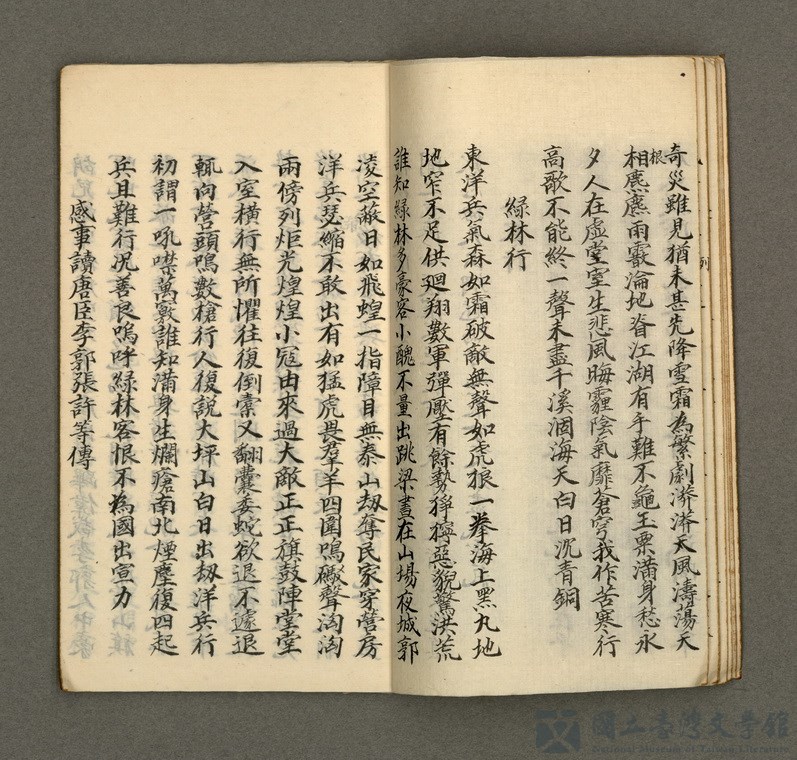 奇災雖見猶未甚先降雪霜為繁劇漭漭天風濤蕩天
相根麃麃雨霰淪地脊江湖有手難不龜玉栗滿身愁永
夕人在虛堂室生悲風晦霾陰氣靡蒼穹我作苦寒行
高歌不能終一聲未盡千溪涸海天白日沉青銅
綠林行
東洋兵氣森如霜破敵無聲如虎狼一拳海上黑丸地
地窄不足供迴翔數軍彈壓有餘勢猙獰惡貌驚洪荒
誰知綠林多豪客小醜不量出跳梁晝在山場夜城郭
凌空蔽日如飛蝗一指障目無泰山劫奪民家穿營房
洋兵瑟縮不敢出有如猛虎畏羣羊四圍鳴礮聲洶洶
兩傍列炬光煌煌小冦由來過大敵正正旗鼓陣堂堂
入室橫行無所懼往復倒橐又翻囊委蛇欲退不遽退
輒向營頭鳴數槍行人復說大坪山白日出劫洋兵行
初謂一吼噤萬竅誰知滿身生爛瘡南北煙塵復四起
兵且難行况善良嗚呼綠林客恨不為國出宣力
感事讀唐臣李郭張許等傳
國立臺灣文學館
National Museum of Taiwan Literature